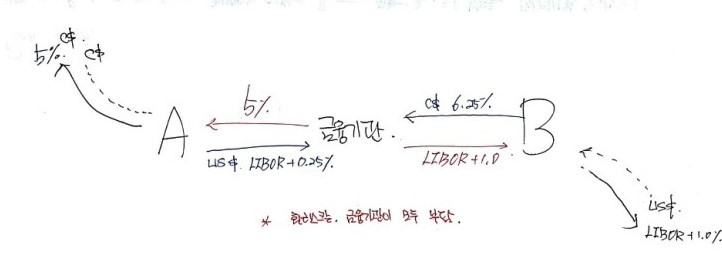 5% C$.
C$
A
5%
US$. LIBOR+0.25%.
금융기관.
C$ 6.25%.
LIBOR+1.0
B
US$.
LIBOR+1.0%
* 환리스크는. 금융기관이 모두 부담.